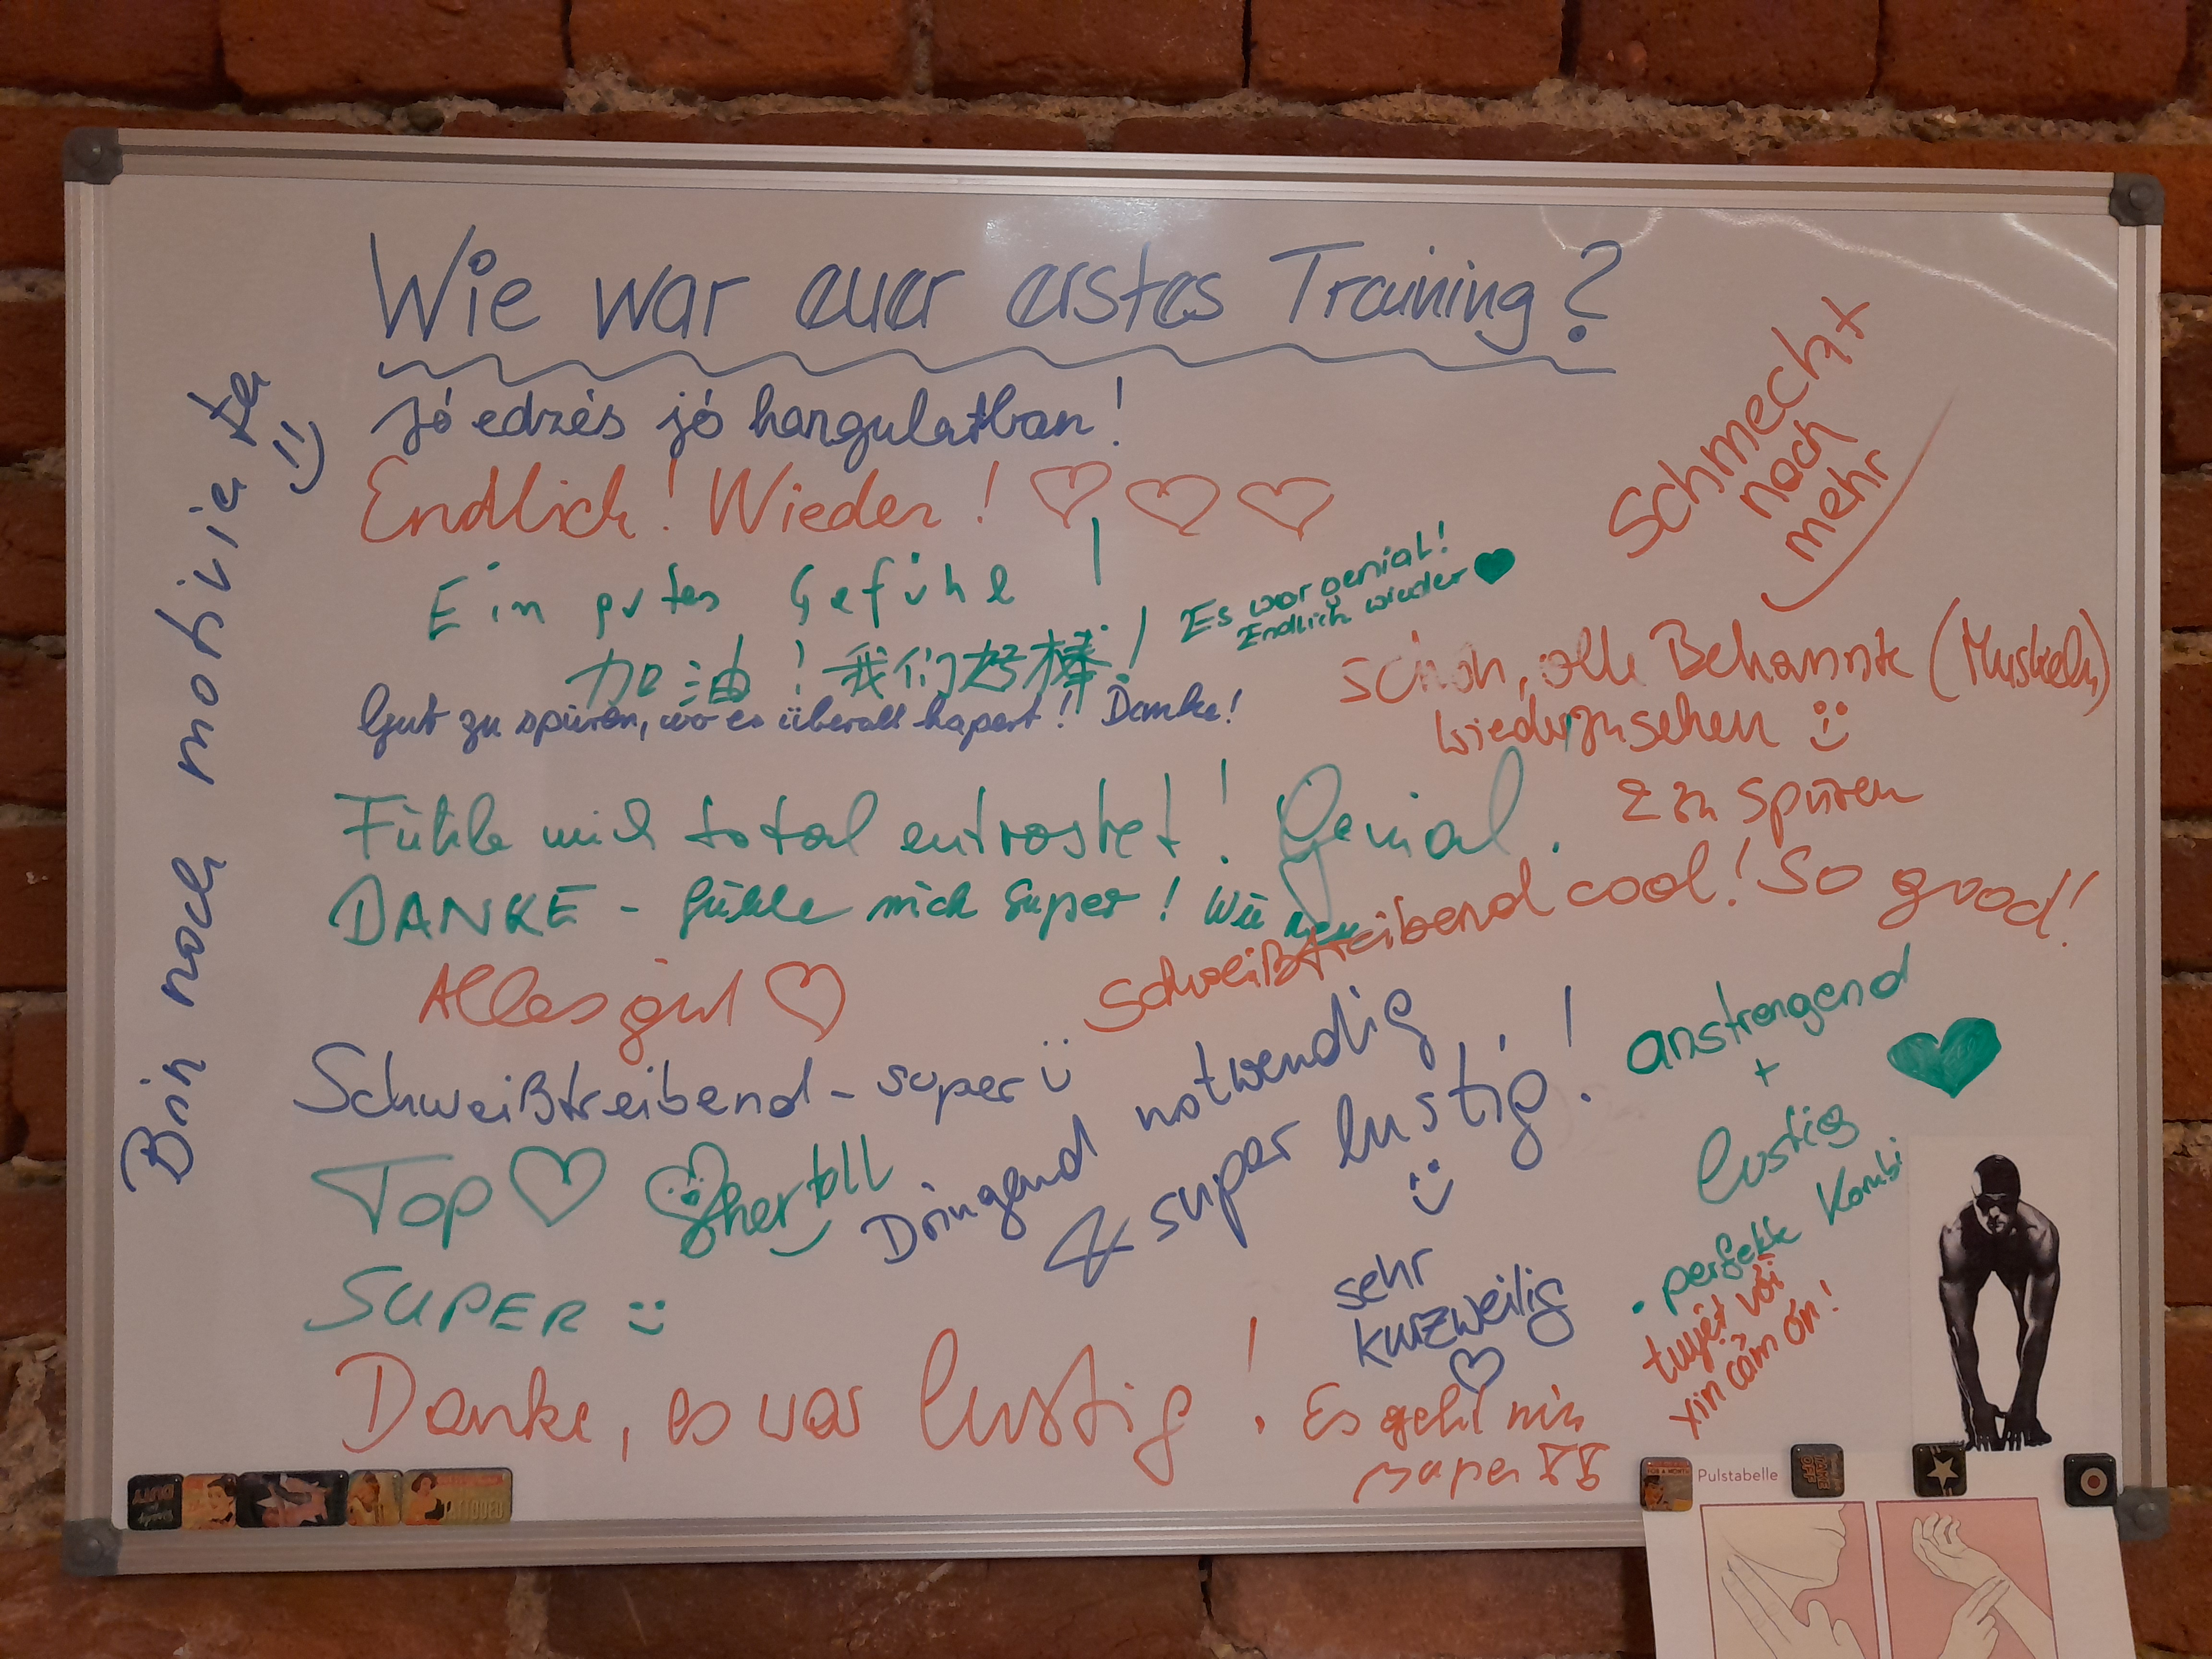 Wie war euer erstes Training?
Jó edzés jó hangulatban!
Endlich! Wieder!
Schmeckt
nach
mehr
Ein gutes Gefühl!
Es war genial!
Endlich wieder
加油！我们好棒！
Gut zu spüren, wo es überall hapert! Danke!
Schön, alle Bekannte (Muskeln)
wiederzusehen
& zu spüren
Fühle mich total entrostet! Genial.
DANKE - fühle mich super! Wie neu
Schweißtreibend cool! So good!
Alles gut
Schweißtreibend - super
Dringend notwendig
& super lustig!
anstrengend
+
lustig
. perfekte Kombi
Top
SUPER
sehr
kurzweilig
tuyệt vời
xin cảm ơn!
Danke, es war lustig!
Es geht mir
super
Bin noch motivierter
Pulstabelle